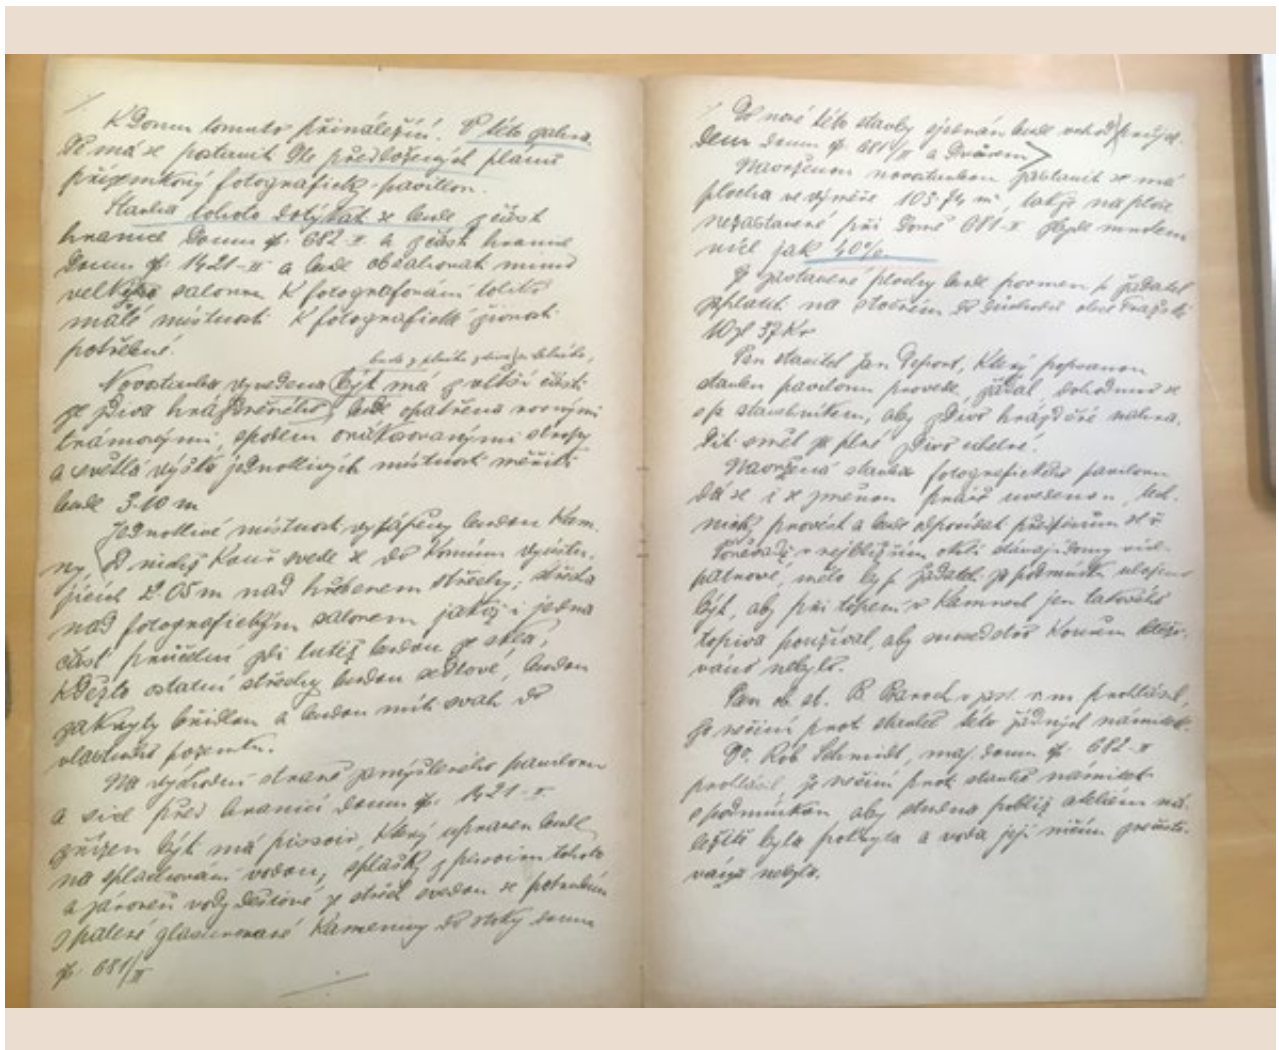 K domu tomuto přináležící. V této zahra
dě má se postaviti dle předložených plánů
přízemkový fotografický pavillon.
Stavba tohoto dotýkat se bude z části
hranice domu čp. 682-II a z části hranice
domu čp. 1421-II a bude obsahovat mimo
velkého salonu k fotografování tolik
malé místnosti k fotografické živnosti
potřebné.
bude z plného zdiva cihelného,
Novostavba vyvedena býti má z větší části
ze zdiva hrázděného, bude opatřena rovnými
trámovými, spodem omítkovanými stropy
a světlá výška jednotlivých místností měřiti
bude 3·10 m
Jednotlivé místnosti vytápěny budou kam-
ny z nichž kouř svede se do komínu
2·05 m nad hřebenem střechy; střecha
nad fotografickým salonem jakož i jedna
část průčelní zdi tutéž budou ze skla,
kdežto ostatní střechy budou sedlové, budou
zakryty břidlou a budou míti svah do
vlastního pozemku.
Na východní straně zamýšleného pavillonu
a sice před hranicí domu čp. 1421-II
zřízen býti má pissoir, který upraven bude
na splachování vodou, splašky z pissoiru tohoto
a zároveň vody dešťové ze střech svedou se potrubím
z pálené glasurované kameniny do stoky domu
čp. 681/II
Do nové této stavby zjednán bude vchod průjez-
dem domu čp. 681/II a dvorem
Navrženou novostavbou zastaviti se má
plocha ve výměře 105·74 m², takže na ploše
nezastavené při domě 681-II zbyde mnohem
více jak 40%.
Z zastavené plochy bude povinen p. žadatel
zplatit na stočném do důchodů obce Pražské
10 zl 57 Kr
Pan stavitel Jan, který popsanou
stavbu pavillonu provede, žádal dohodnuv se
s p. stavebníkem, aby zdivo hrázděné nahra-
diti směl ze plné zdivo cihelné.
Navržená stavba fotografického pavillonu
dá se i se změnou právě uvedenou tech-
nicky provést a bude odpovídat předpisům
Poněvadž v nejbližším okolí stávají domy více-
patrové, mělo by p. žadateli za podmínku uloženo
býti, aby při topení v kamnech jen takového
topiva používal, aby sousedstvo kouřem obtěžo-
váno nebylo.
Pan ob. st. prohlásil,
že nečiní proti stavbě této žádných námitek.
Dr. Rob Schmidt, maj. domu čp. 682-II
prohlásil, že nečiní proti stavbě námitek
s podmínkou, aby studna poblíž atelieru ná-
ležitě byla pokryta a voda její ničím znečišťo-
vána nebyla.